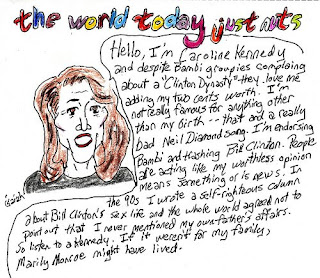 the world today just nuts
Hello, I'm Caroline Kennedy
and despite Bambi groupies complaining
about a "Clinton Dynasty" they love me
adding my two cents worth. I'm
not really famous for anything other
than my birth -- that and a really
bad Neil Diamond song. I'm endorsing
Bambi and trashing Bill Clinton. People
are acting like my worthless opinion
means something or is news! In
the 90s I wrote a self-righteous column
about Bill Clinton's sex life and the whole world agreed not to
point out that I never mentioned my own father's affairs.
So listen to a Kennedy. If it weren't for my family,
Marily Monroe might have lived.
isaiah